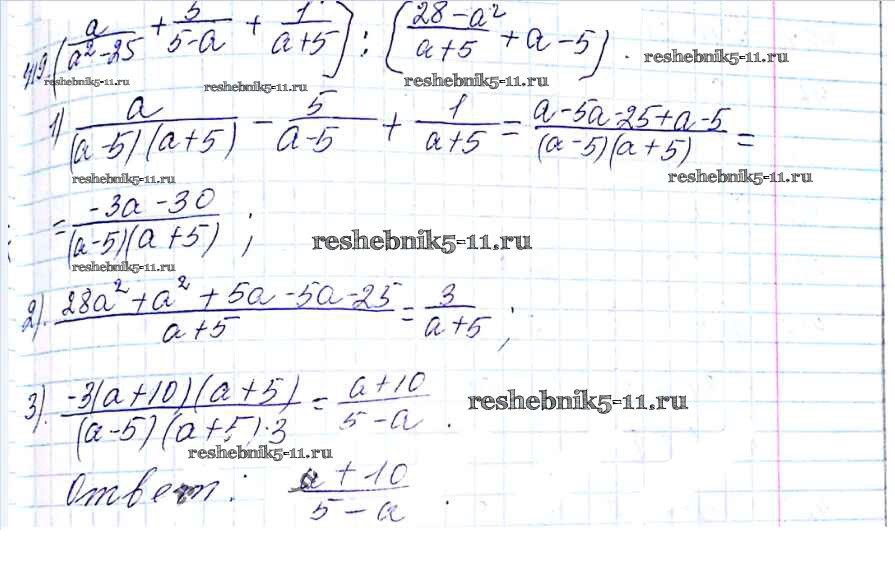 419. (a/(a²-25) + 5/(5-a) + 1/(a+5)) : ((28-a²)/(a+5) + a-5).
reshebnik5-11.ru
reshebnik5-11.ru
reshebnik5-11.ru
reshebnik5-11.ru
1) a/((a-5)(a+5)) - 5/(a-5) + 1/(a+5) = (a-5a-25+a-5)/((a-5)(a+5)) =
reshebnik5-11.ru
reshebnik5-11.ru
= (-3a-30)/((a-5)(a+5));
reshebnik5-11.ru
reshebnik5-11.ru
2). (28a²+a²+5a-5a-25)/(a+5) = 3/(a+5);
3). (-3(a+10)(a+5))/((a-5)(a+5)·3) = (a+10)/(5-a).
reshebnik5-11.ru
reshebnik5-11.ru
Ответ: (a+10)/(5-a).